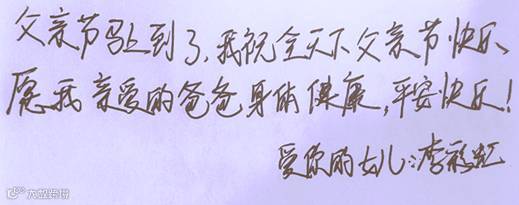 父亲节马上到了,我祝全天下父亲节快乐、
愿我亲爱的爸爸身体健康,平安快乐!
爱你的女儿:李彩虹